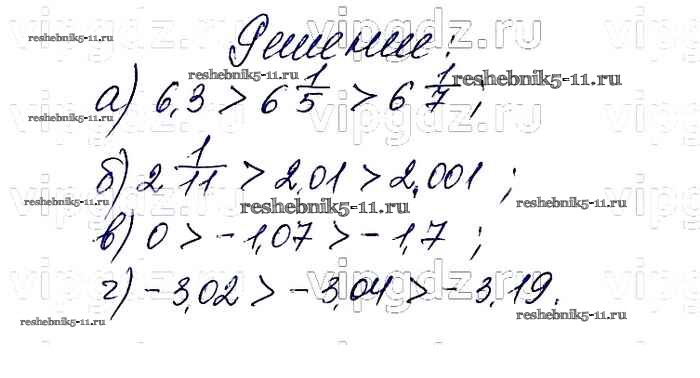 Решение:
а) 6,3 > 6 1/5 > 6 1/7 ;
б) 2 1/11 > 2,01 > 2,001 ;
в) 0 > -1,07 > -1,7 ;
г) -3,02 > -3,04 > -3,19.
reshebnik5-11.ru
reshebnik5-11.ru
reshebnik5-11.ru
reshebnik5-11.ru
reshebnik5-11.ru
reshebnik5-11.ru
reshebnik5-11.ru
reshebnik5-11.ru
reshebnik5-11.ru
vipgdz.ru
vipgdz.ru
vipgdz.ru
vipgdz.ru